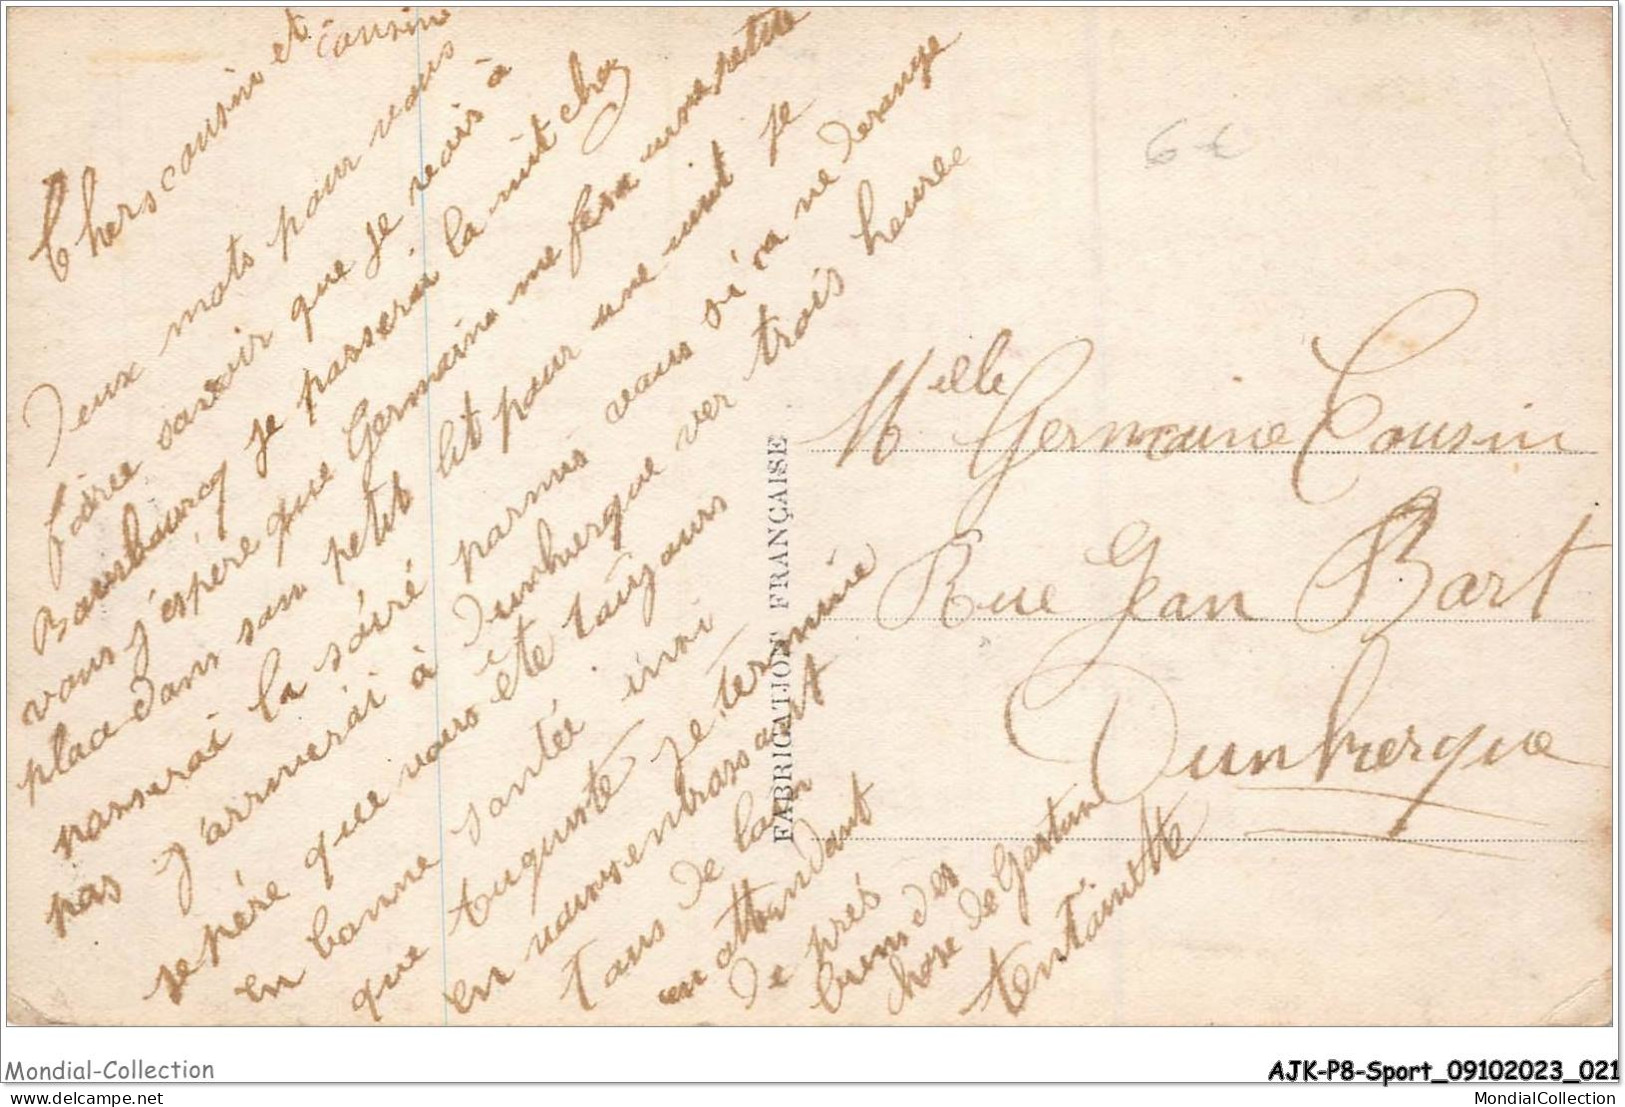 Chers cousin et cousine
Deux mots pour vous
fairee savoir que je vais à
Bourbourcq je passerai la nuit chez
vous j'espère que Germaine me fera une petite
place dans son petit lit pour une nuit je
passerai la soiré parmis vous si ça ne derange
pas j'arriverai à Dunkerque ver trois heures
jespére que vous ête toujours
en bonne santée inni
que Auguste je términe
en vous embrassant
tous de loin
en attendant
De prés
bien des
chose de Gaston
tentainthe
6 €
Melle Germaine Cousin
Rue Jean Bart
Dunkerque
FABRICATION FRANÇAISE
Mondial-Collection
AJK-P8-Sport_09102023_021
delcampe.net
MondialCollection